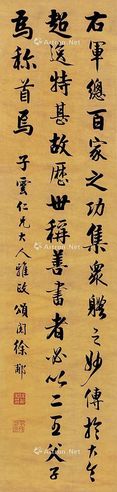 右軍總百家之功集衆體之妙傳於大令
超逸特甚故歷世稱善書者必以二王父子
焉稱首焉
子雲仁兄大人雅政 頌閣徐郙